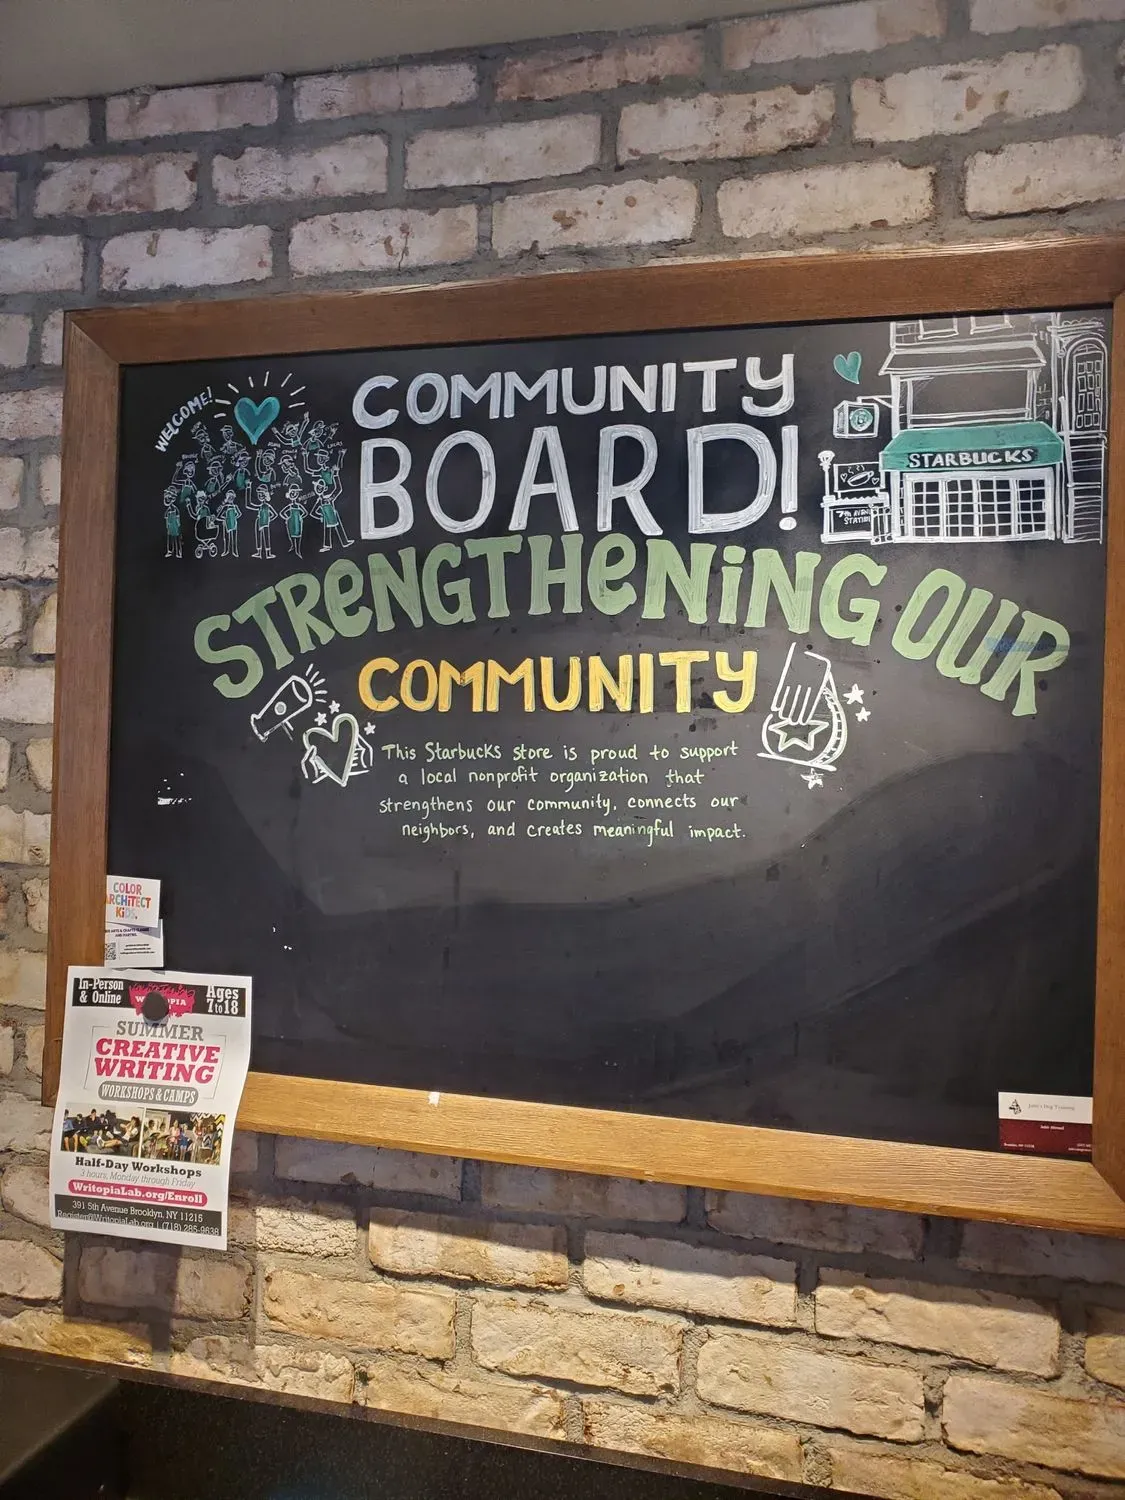 WELCOME!
COMMUNITY
BOARD!
STARBUCKS
7TH AVENUE
STATION
STRENGTHENING OUR
COMMUNITY
This Starbucks store is proud to support
a local nonprofit organization that
strengthens our community, connects our
neighbors, and creates meaningful impact.
COLOR
ARCHITECT
KIDS.
AND PARTIES.
In-Person
& Online
Ages
7 to 18
SUMMER
CREATIVE
WRITING
WORKSHOPS & CAMPS
Half-Day Workshops
3 hours, Monday through Friday
WritopiaLab.org/Enroll
391 5th Avenue Brooklyn, NY 11215
Register@WritopiaLab.org | (718) 285-9638
Dog Training